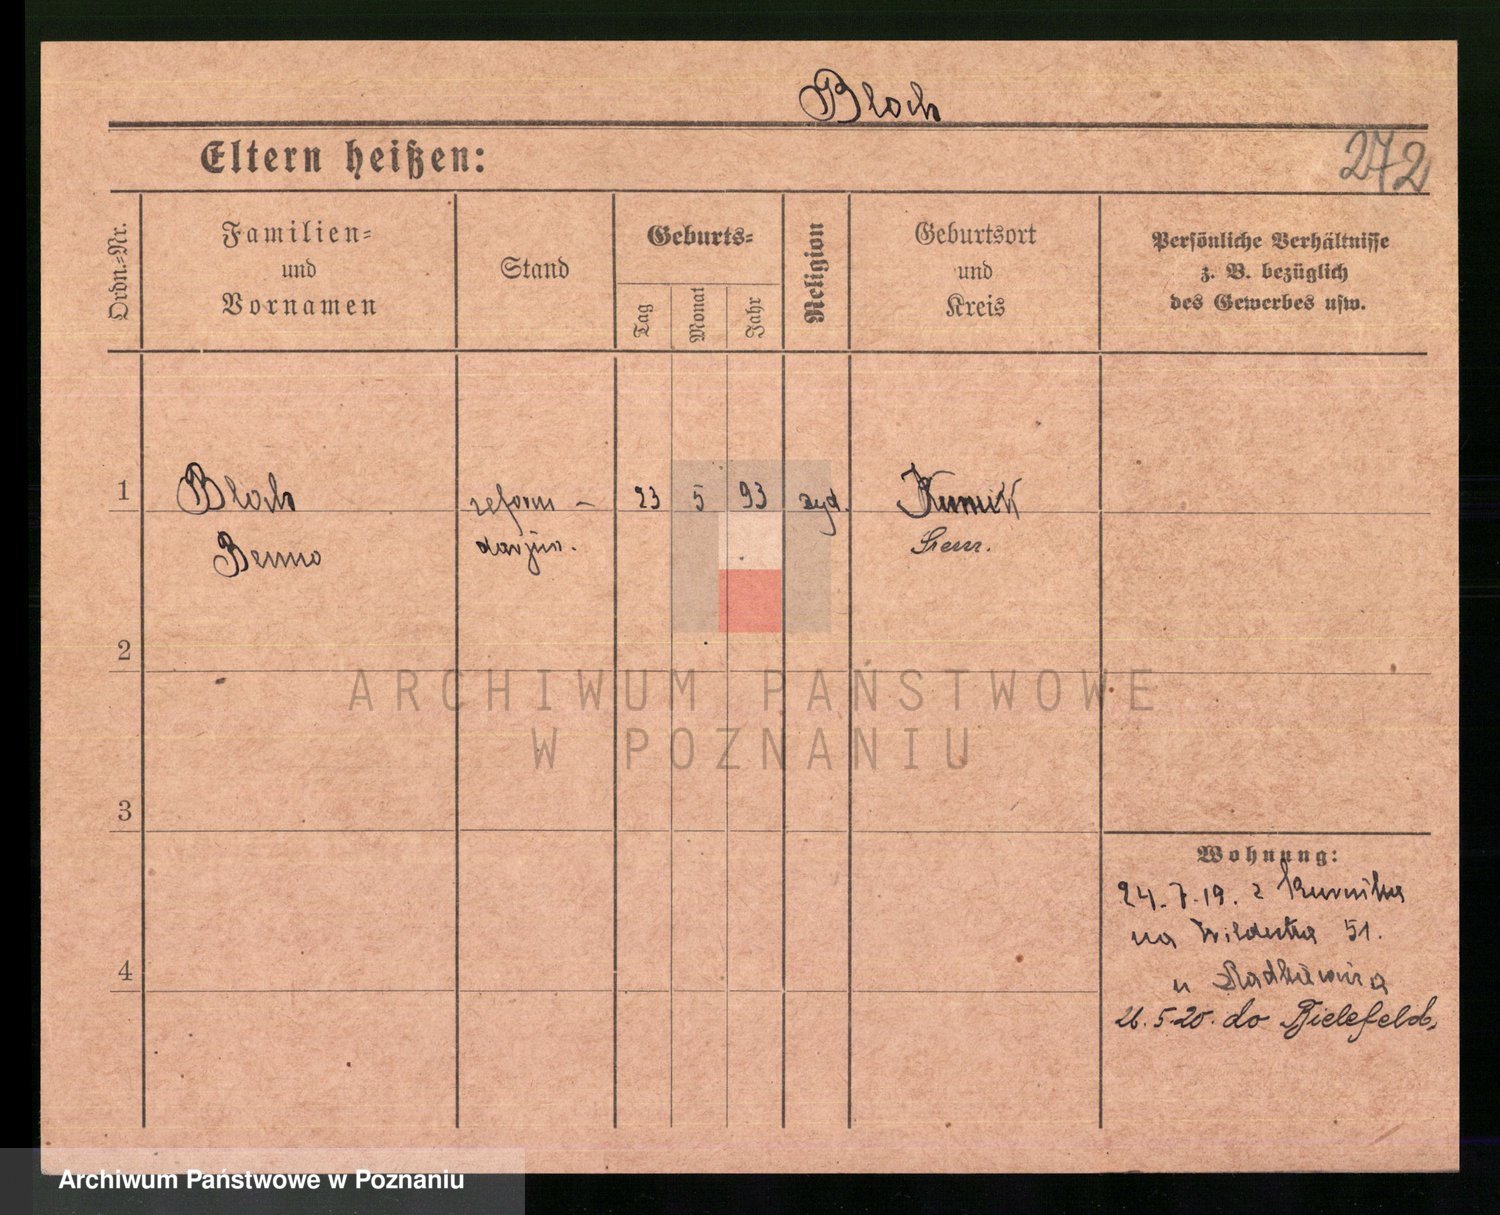 Bloch
Eltern heißen:
272
Ordn.-Nr.
Familien-
und
Vornamen
Stand
Geburts-
Tag
Monat
Jahr
Religion
Geburtsort
und
Kreis
Persönliche Verhältnisse
z. B. bezüglich
des Gewerbes usw.
1
Bloch
Benno
23 5 93
Kurnik
Srem.
2
ARCHIWUM PAŃSTWOWE
W POZNANIU
3
4
Wohnung:
24.7.19. z Kurnika
na 51.
u
26.5.20. do Bielefeld.
Archiwum Państwowe w Poznaniu